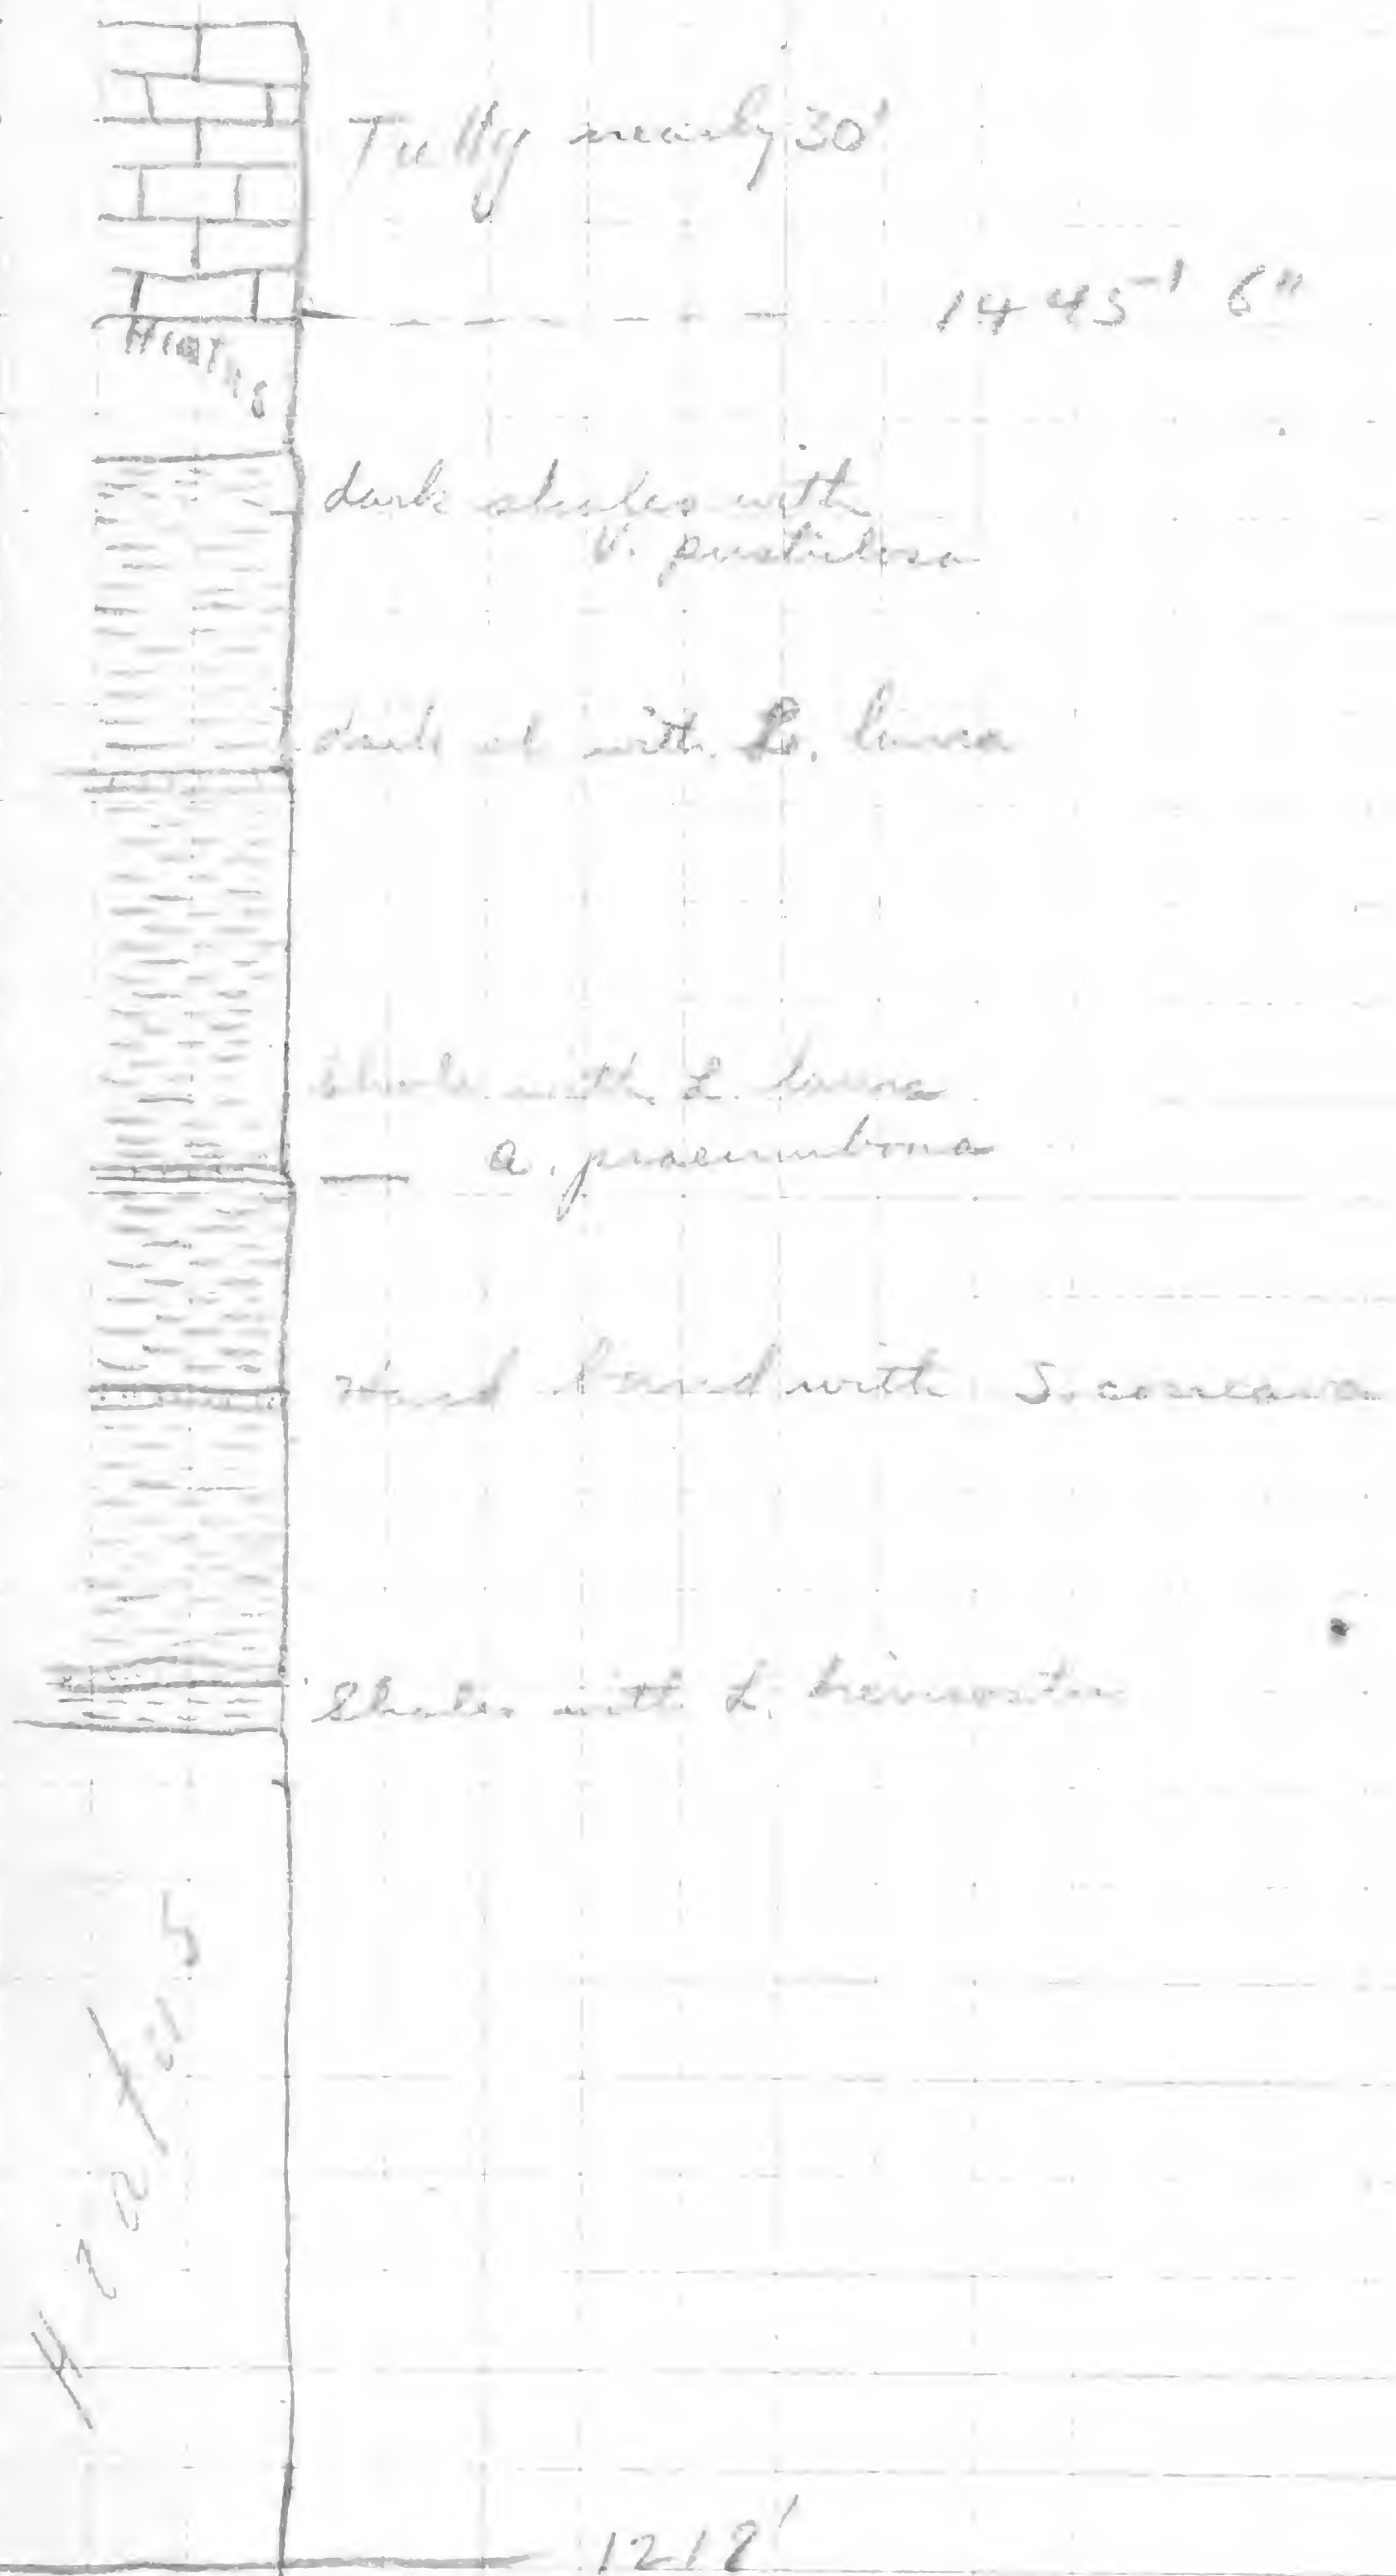 Tully nearly 30'
1445' 6"
HIATUS
dark shales with
V. pustulosa
dark sh with L. laura
Shale with L. laura
a. praeumbona
Hard band with S. concava
Shales with L.
Hiatus
1218'